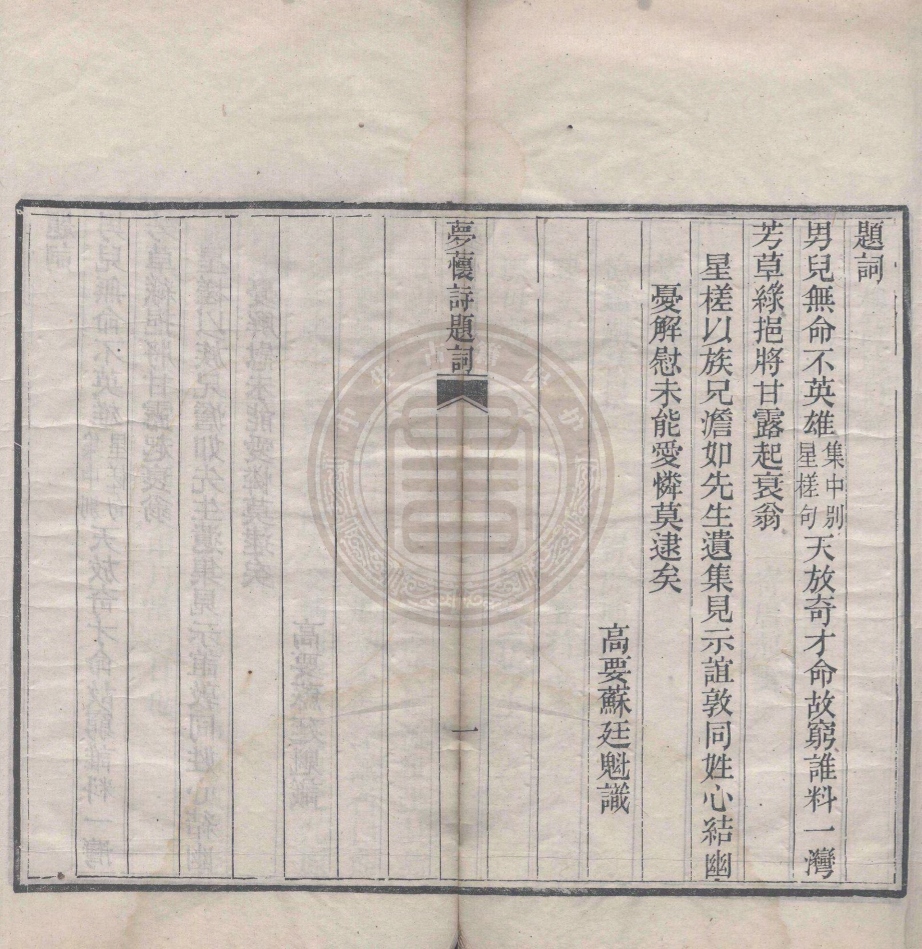 題詞
男兒無命不英雄集中別星槎句天放奇才命故窮誰料一灣
芳草綠挹將甘露起衰翁
星槎以族兄澹如先生遺集見示誼敦同姓心結幽
憂解慰未能愛憐莫逮矣
高要蘇廷魁識
夢蘹詩題詞
一